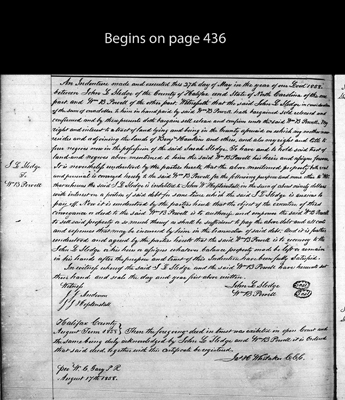 Begins on page 436
An Indenture made and executed this 27th day of May in the year of our Lord 1858.
between John L Sledge of the County of Halifax and State of North Carolina of the one
part and Wm B Powell of the other part. Witnesseth that the said John L Sledge in consideration
of the sum of one dollar to him in hand paid by said Wm B Powell hath bargained sold released and
confirmed and by these presents doth bargain sell release and confirm unto the said Wm B Powell his
right and interest to a tract of land lying and being in the County aforesaid on which my mother now
resides and adjoining the lands of and others, and also my right and title to
four negroes now in the possession of the said Sarah Sledge. To have and to hold said tract of
land and negroes above mentioned to him the said Wm B Powell his heirs and assigns forever.
It is nevertheless understood by the parties hereto that the above mentioned property both real
and personal is conveyed hereby to the said Wm B Powell for the following purpose and none other to wit
that whereas the said J L Sledge is indebted to John W in the sum of about ninety dollars
with interest on a portion of said debt for some time and the said J L Sledge is desirous to
pay off. Now it is understood by the parties hereto that the object of the execution of this
conveyance or deed to the said Wm B Powell is to authorize and empower the said Wm B Powell
to sell said property or so much thereof as shall be sufficient to pay the above debt and interest
and expenses that may be incurred by him in the of said debt. And it is further
understood and agreed by the parties hereto that the said Wm B Powell is to reconvey to the
John L Sledge or his heirs or assigns whatever balance property may be left or remain
in his hands after the purpose and trust of this Indenture have been fully satisfied.
In witness whereof the said J L Sledge and the said W B Powell have hereunto set
their hands and seals the day and year first above written.
Witness
John L Sledge (seal)
J J
Wm B Powell (seal)
J J
J L Sledge
To
W B Powell
Halifax County
August Term 1858 } Then the foregoing deed in trust was exhibited in open Court and
the same being duly acknowledged by John L Sledge and Wm B Powell it is Ordered
that said deed together with this certificate be registered.
Jas H Whitaker C.C.C.
per W. C. Gary P. R.
August 17th 1858.